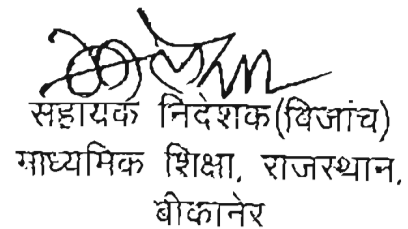 सहायक निदेशक(विजांच)
माध्यमिक शिक्षा, राजस्थान,
बीकानेर